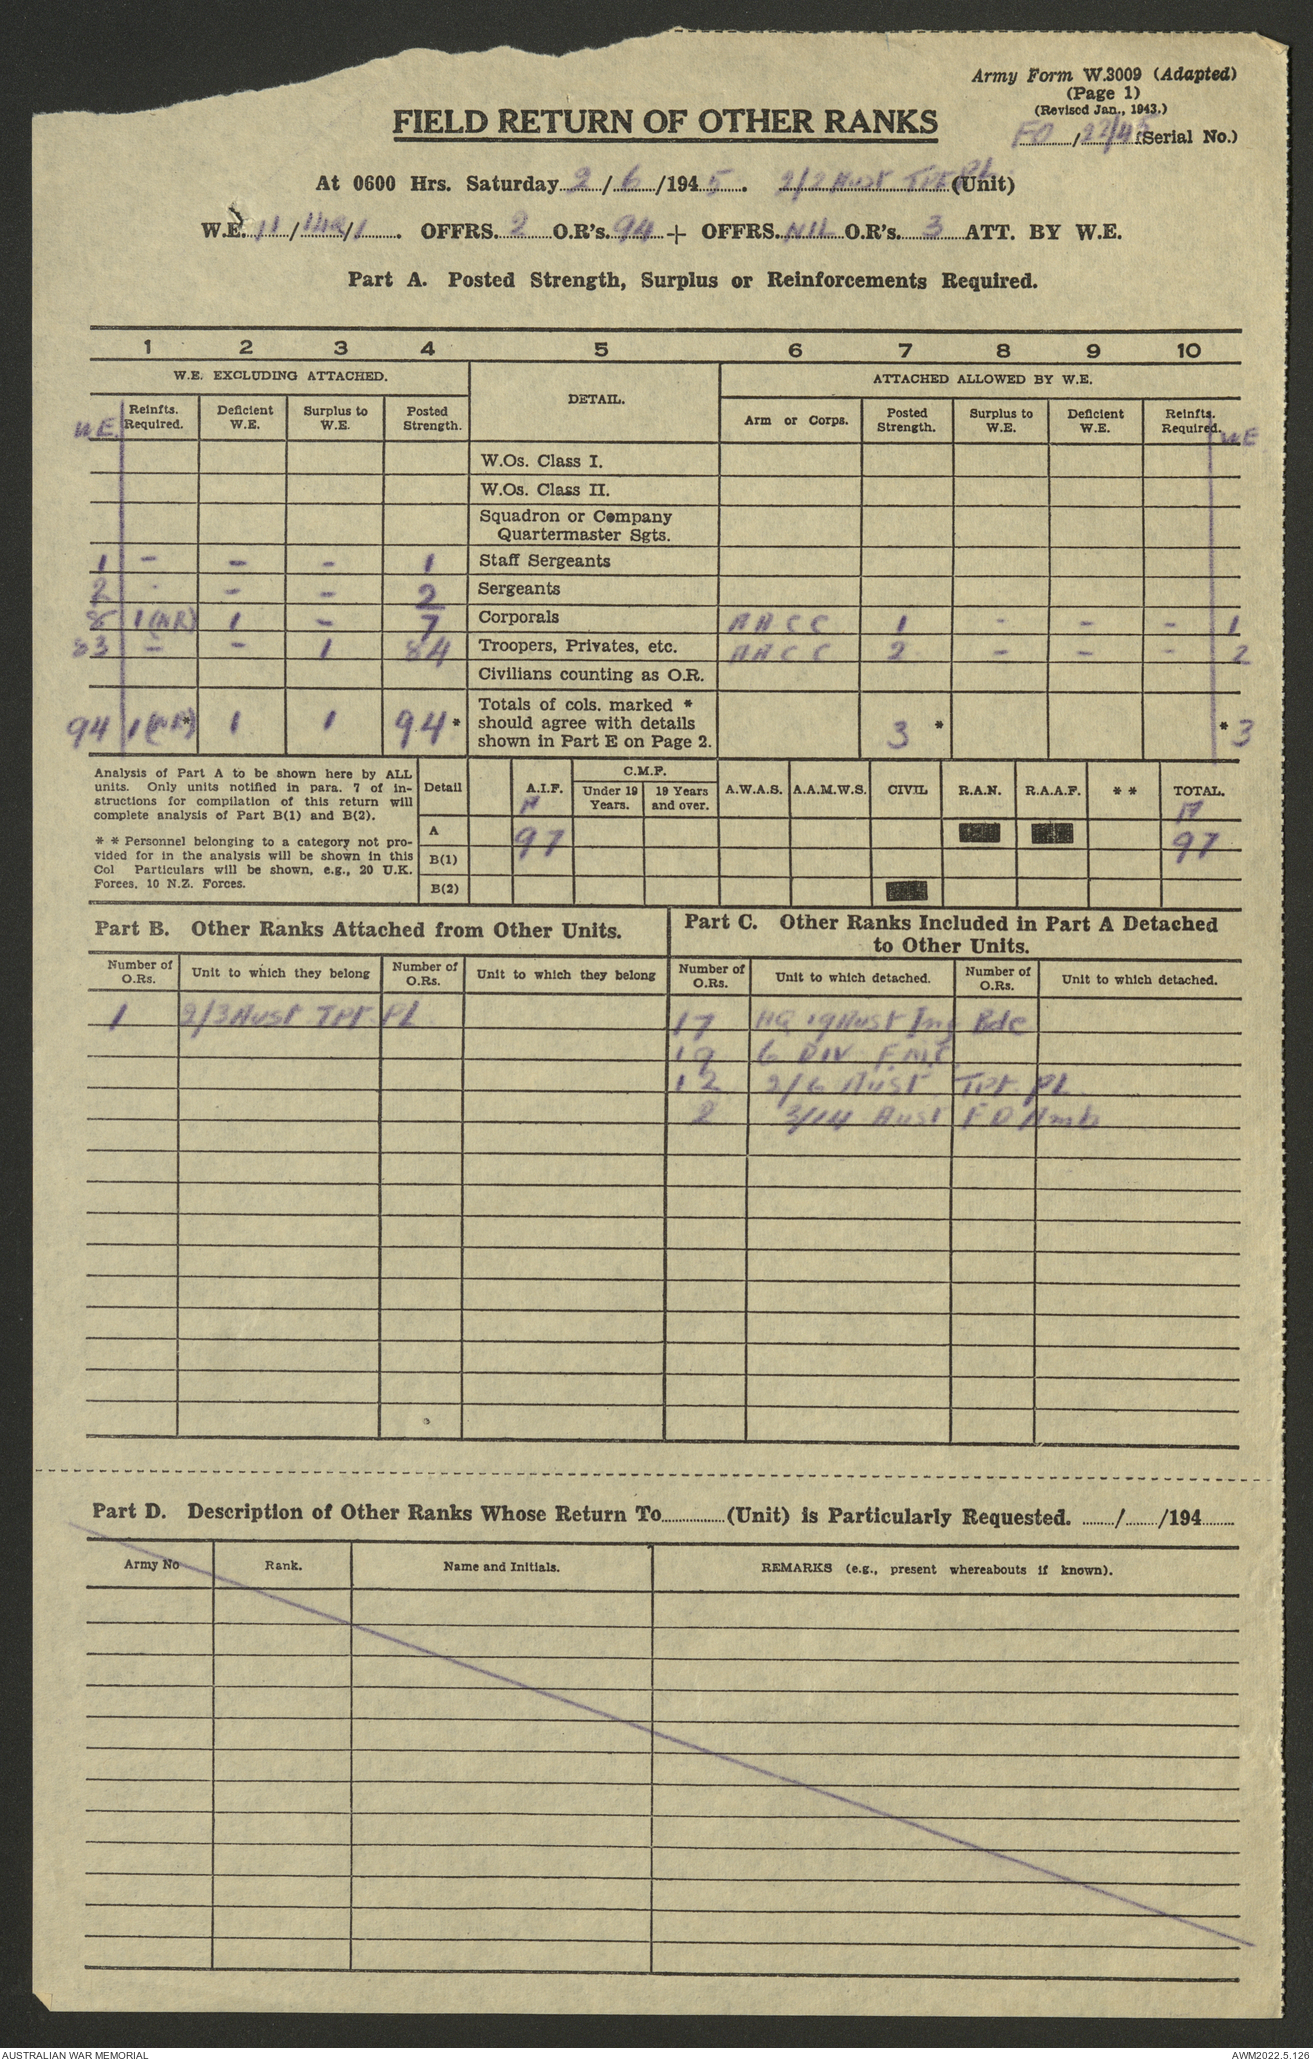 Army Form W.3009 (Adapted)
(Page 1)
(Revised Jan., 1943.)
FIELD RETURN OF OTHER RANKS
FD / 22/45 (Serial No.)
At 0600 Hrs. Saturday 2 / 6 /194 5. 2/2 Aust Tpt Pl (Unit)
W.E. 11 / / 1 . OFFRS. 2 O.R's. 94 + OFFRS. NIL O.R's. 3 ATT. BY W.E.
Part A. Posted Strength, Surplus or Reinforcements Required.
1 2 3 4 5 6 7 8 9 10
W.E. EXCLUDING ATTACHED. DETAIL. ATTACHED ALLOWED BY W.E.
W.E. Reinfts. Required. Deficient W.E. Surplus to W.E. Posted Strength. Arm or Corps. Posted Strength. Surplus to W.E. Deficient W.E. Reinfts. Required. WE
W.Os. Class I.
W.Os. Class II.
Squadron or Company
Quartermaster Sgts.
1 - - - 1 Staff Sergeants
2 - - - 2 Sergeants
8 1 (NR) 1 - 7 Corporals AACC 1 - - - 1
83 - - 1 84 Troopers, Privates, etc. AACC 2 - - - 2
Civilians counting as O.R.
94 1 (NR)* 1 1 94 * Totals of cols. marked *
should agree with details
shown in Part E on Page 2. 3 * * 3
Analysis of Part A to be shown here by ALL
units. Only units notified in para. 7 of in-
structions for compilation of this return will
complete analysis of Part B(1) and B(2).
* * Personnel belonging to a category not pro-
vided for in the analysis will be shown in this
Col Particulars will be shown, e.g., 20 U.K.
Forces, 10 N.Z. Forces.
Detail A.I.F. C.M.F. Under 19 Years. 19 Years and over. A.W.A.S. A.A.M.W.S. CIVIL R.A.N. R.A.A.F. * * TOTAL.
A 97 97
B(1)
B(2)
Part B. Other Ranks Attached from Other Units.
Part C. Other Ranks Included in Part A Detached
to Other Units.
Number of O.Rs. Unit to which they belong Number of O.Rs. Unit to which they belong Number of O.Rs. Unit to which detached. Number of O.Rs. Unit to which detached.
1 2/3 Aust Tpt Pl 17 HQ 19 Aust Inf Bde
19 6 DIV F.M.C.
12 2/6 Aust Tpt. Pl
2 3/14 Aust FD Amb
Part D. Description of Other Ranks Whose Return To (Unit) is Particularly Requested. / /194
Army No Rank. Name and Initials. REMARKS (e.g., present whereabouts if known).
AUSTRALIAN WAR MEMORIAL AWM2022.5.126